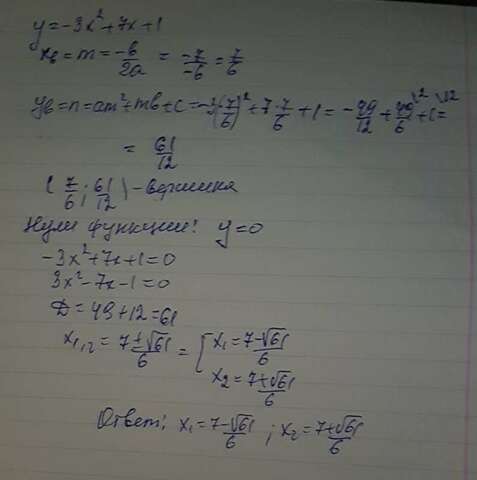 y=-3x²+7x+1
xв=m=-b/2a=-7/-6=7/6
yв=n=am²+mb+c=-3(7/6)²+7·7/6+1=-49/12+49/6\2+1\12=
=61/12
(7/6;61/12)-вершина
Нули функции: y=0
-3x²+7x+1=0
3x²-7x-1=0
D=49+12=61
x1,2=7±√61/6=[x1=7-√61/6
x2=7+√61/6
Ответ: x1=7-√61/6; x2=7+√61/6